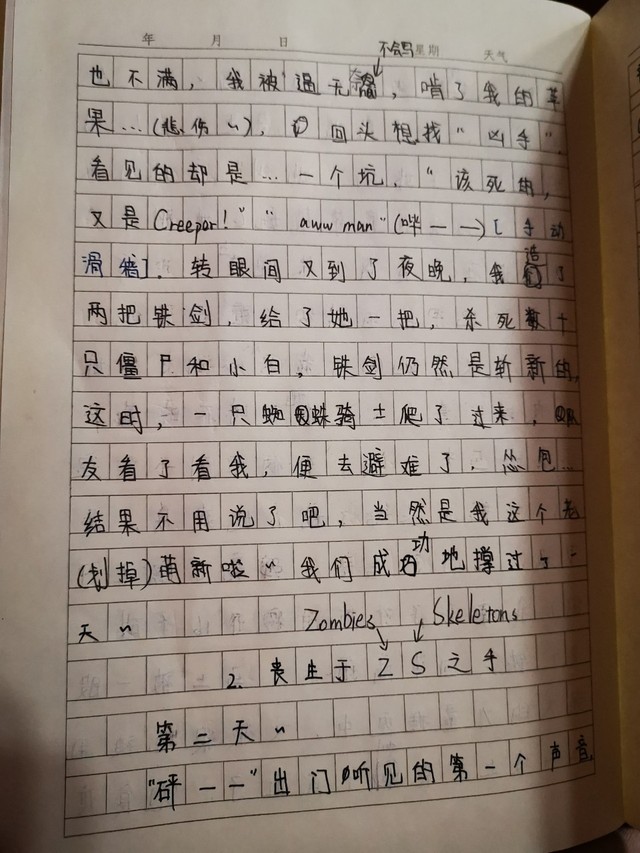 年 月 日 不会写 星期 天气
也不满，我被逼无奈，啃了我的苹
果…(悲伤~)，回头想找“凶手”，
看见的却是…一个坑，“该死的，
又是Creeper！”“aww man”(哔——)[手动
滑稽]．转眼间又到了夜晚，我造了
两把铁剑，给了她一把，杀死数十
只僵尸和小白，铁剑仍然是崭新的，
这时，一只蜘蛛骑士爬了过来，队
友看了看我，便去避难了．怂包…
结果不用说了吧，当然是我这个老
(划掉)萌新啦~我们成功地撑过了一
天~ Zombies Skeletons
2．丧生于ZS之手
第二天~
“砰——”出门听见的第一个声音，